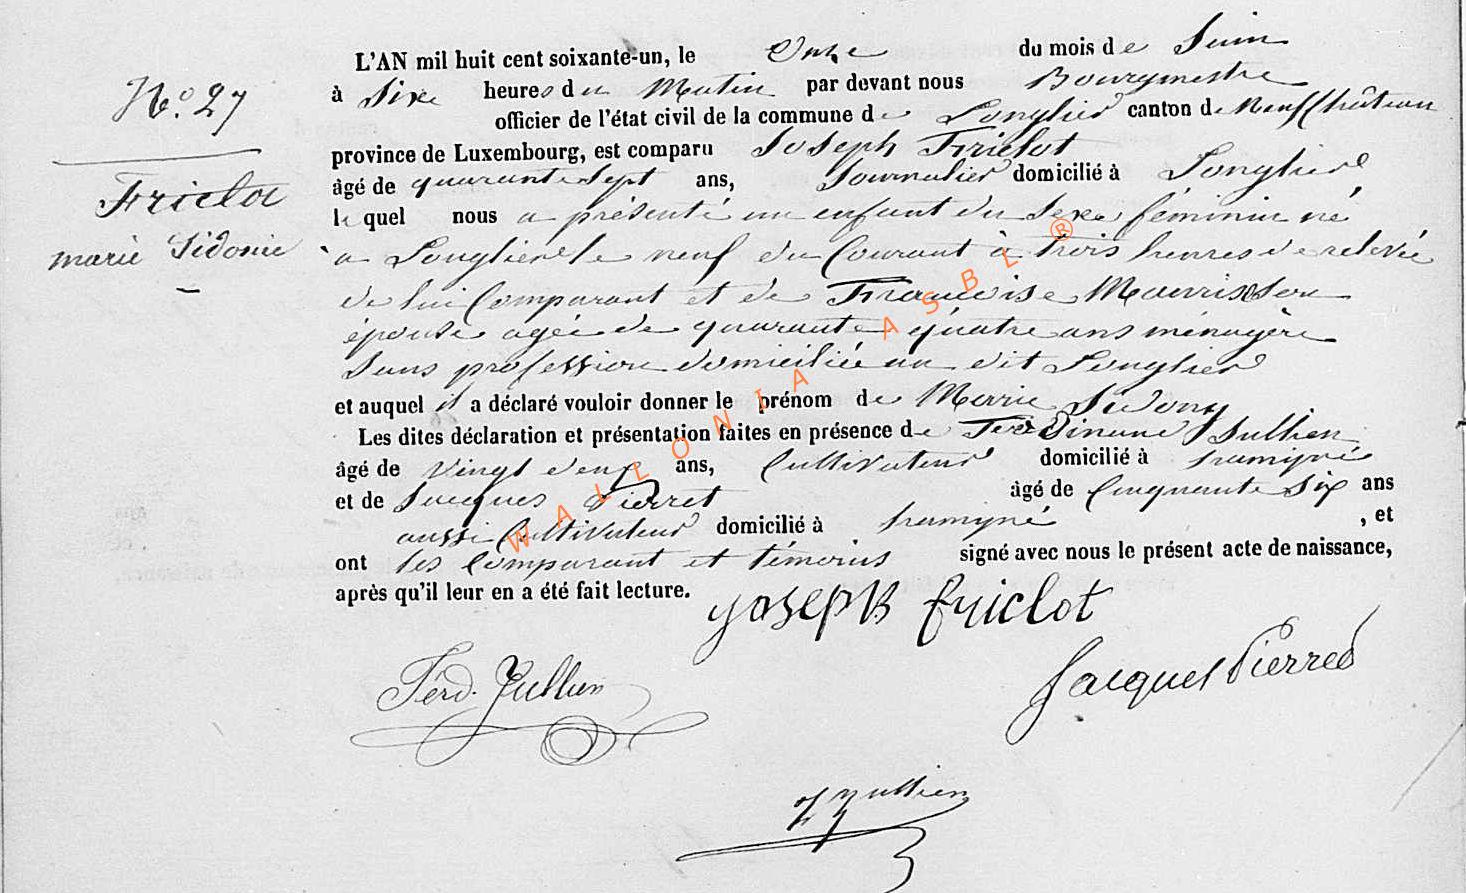 N.° 27
Friclot
marie Sidonie
L'AN mil huit cent soixante-un, le Onze du mois de Juin
à Six heures du Matin par devant nous Bourgmestre
officier de l'état civil de la commune de Longlier canton de Neufchâteau
province de Luxembourg, est comparu Joseph Friclot
âgé de quarante sept ans, Journalier domicilié à Longlier
lequel nous a présenté un enfant du Sexe féminin né
à Longlier le neuf du Courant à trois heures de relevée
de lui Comparant et de Francoise Maurisse son
épouse agée de quarante quatre ans ménagère
Sans profession domiciliée au dit Longlier
et auquel il a déclaré vouloir donner le prénom de Marie Sidony
Les dites déclaration et présentation faites en présence de Ferdinand Jullien
âgé de vingt deux ans, Cultivateur domicilié à
et de Jacques Pierret âgé de Cinquante Six ans
aussi Cultivateur domicilié à , et
ont les Comparant et témoins signé avec nous le présent acte de naissance,
après qu'il leur en a été fait lecture.
Joseph friclot
Férd. Jullien
Jacques Pierred
Jullien
WALLONIA ASBL ®